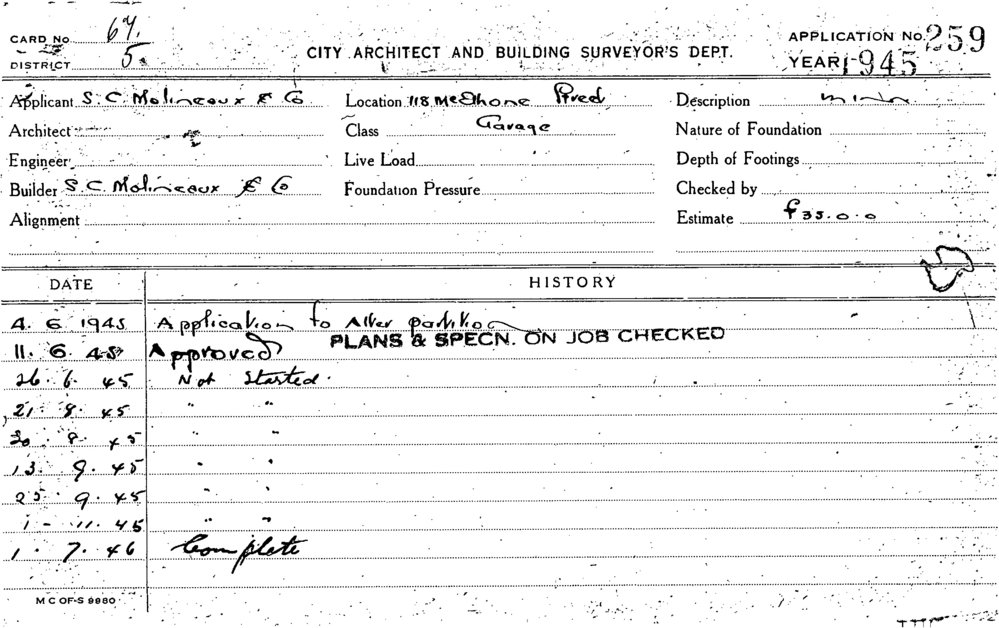 CARD No. 67.
DISTRICT 5.
CITY ARCHITECT AND BUILDING SURVEYOR'S DEPT.
APPLICATION No. 259
YEAR 1945
Applicant S. C. Molineaux & Co Location 118 McElhone Street Description minor
Architect Class Garage Nature of Foundation
Engineer Live Load Depth of Footings
Builder S. C. Molineaux & Co Foundation Pressure Checked by
Alignment Estimate £35.0.0
DATE HISTORY
4. 6. 1945 Application to Alter partition
PLANS & SPECN. ON JOB CHECKED
11. 6. 45 Approved
26. 6. 45 Not Started.
21. 8. 45 " "
30. 8. 45 " "
13. 9. 45 " "
25. 9. 45 " "
1 - 11. 45 " "
1. 7. 46 Complete
M C OF-S 9980